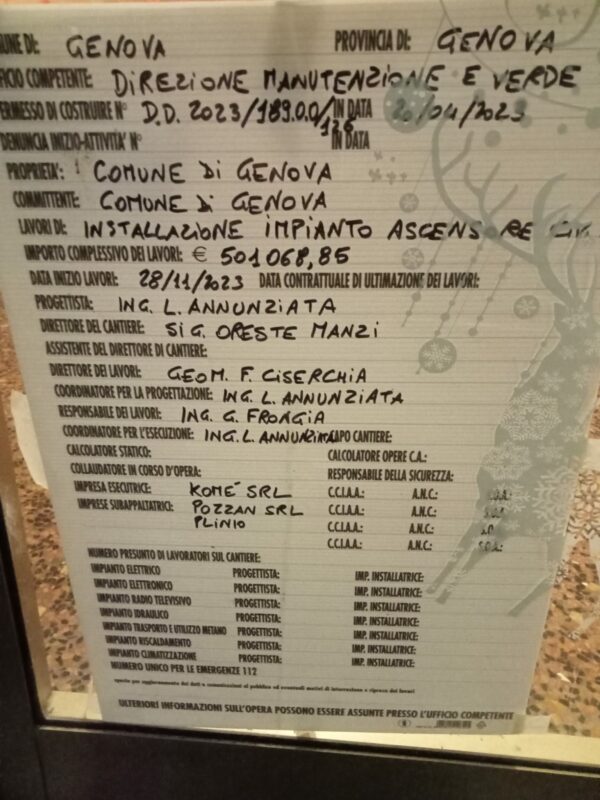 UNE DI: GENOVA PROVINCIA DI: GENOVA
FICIO COMPETENTE: DIREZIONE MANUTENZIONE E VERDE
ERMESSO DI COSTRUIRE N° D.D. 2023/189.0.0/126 IN DATA 20/04/2023
DENUNCIA INIZIO-ATTIVITA' N° IN DATA
PROPRIETA': COMUNE DI GENOVA
COMMITTENTE: COMUNE DI GENOVA
LAVORI DI: INSTALLAZIONE IMPIANTO ASCENSORE
IMPORTO COMPLESSIVO DEI LAVORI: € 501068,85
DATA INIZIO LAVORI: 28/11/2023 DATA CONTRATTUALE DI ULTIMAZIONE DEI LAVORI:
PROGETTISTA: ING. L. ANNUNZIATA
DIRETTORE DEL CANTIERE: SIG. ORESTE MANZI
ASSISTENTE DEL DIRETTORE DI CANTIERE:
DIRETTORE DEI LAVORI: GEOM. F. CISERCHIA
COORDINATORE PER LA PROGETTAZIONE: ING. L. ANNUNZIATA
RESPONSABILE DEI LAVORI: ING. G. FRONGIA
COORDINATORE PER L'ESECUZIONE: ING. L. ANNUNZIATA CAPO CANTIERE:
CALCOLATORE STATICO: CALCOLATORE OPERE C.A.:
COLLAUDATORE IN CORSO D'OPERA: RESPONSABILE DELLA SICUREZZA:
IMPRESA ESECUTRICE: KOMÉ SRL C.C.I.A.A.: A.N.C.: S.O.A.:
IMPRESE SUBAPPALTATRICI: POZZAN SRL C.C.I.A.A.: A.N.C.: S.O.A.
PLINIO C.C.I.A.A.: A.N.C.:
C.C.I.A.A.: A.N.C.: S.O.A.:
NUMERO PRESUNTO DI LAVORATORI SUL CANTIERE:
IMPIANTO ELETTRICO PROGETTISTA: IMP. INSTALLATRICE:
IMPIANTO ELETTRONICO PROGETTISTA: IMP. INSTALLATRICE:
IMPIANTO RADIO TELEVISIVO PROGETTISTA: IMP. INSTALLATRICE:
IMPIANTO IDRAULICO PROGETTISTA: IMP. INSTALLATRICE:
IMPIANTO TRASPORTO E UTILIZZO METANO PROGETTISTA: IMP. INSTALLATRICE:
IMPIANTO RISCALDAMENTO PROGETTISTA: IMP. INSTALLATRICE:
IMPIANTO CLIMATIZZAZIONE PROGETTISTA: IMP. INSTALLATRICE:
NUMERO UNICO PER LE EMERGENZE 112
spazio per aggiornamento dei dati o comunicazioni al pubblico ed eventuali motivi di interruzione o ripresa dei lavori
ULTERIORI INFORMAZIONI SULL'OPERA POSSONO ESSERE ASSUNTE PRESSO L'UFFICIO COMPETENTE